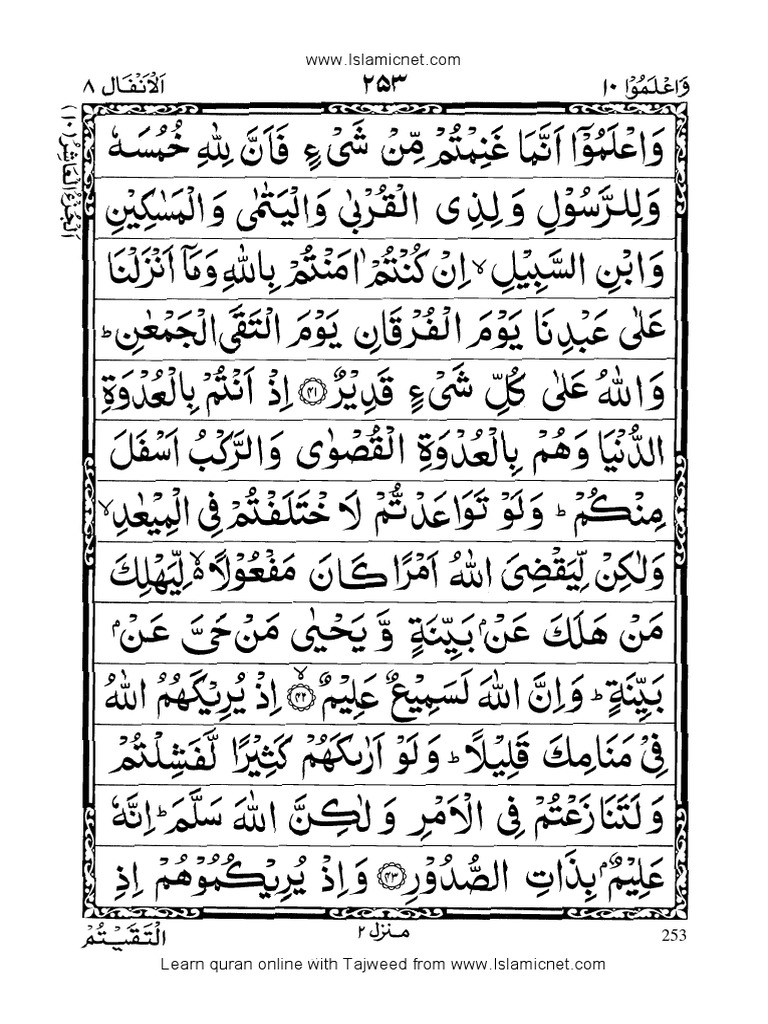 www.Islamicnet.com
وَاعْلَمُوْا ١٠ ٢٥٣ اَلْاَنْفَال ٨
اَلْجُزْءُ الْعَاشِرُ (١٠)
وَاعْلَمُوْٓا اَنَّمَا غَنِمْتُمْ مِّنْ شَیْءٍ فَاَنَّ لِلّٰهِ خُمُسَهٗ
وَلِلرَّسُوْلِ وَلِذِی الْقُرْبٰی وَالْیَتٰمٰی وَالْمَسٰكِیْنِ
وَابْنِ السَّبِیْلِ ۙ اِنْ كُنْتُمْ اٰمَنْتُمْ بِاللّٰهِ وَمَاۤ اَنْزَلْنَا
عَلٰی عَبْدِنَا یَوْمَ الْفُرْقَانِ یَوْمَ الْتَقَی الْجَمْعٰنِ ؕ
وَاللّٰهُ عَلٰی كُلِّ شَیْءٍ قَدِیْرٌ ۝۴۱ اِذْ اَنْتُمْ بِالْعُدْوَةِ
الدُّنْیَا وَهُمْ بِالْعُدْوَةِ الْقُصْوٰی وَالرَّكْبُ اَسْفَلَ
مِنْكُمْ ؕ وَلَوْ تَوَاعَدْتُّمْ لَاخْتَلَفْتُمْ فِی الْمِیْعٰدِ ۙ
وَلٰكِنْ لِّیَقْضِیَ اللّٰهُ اَمْرًا كَانَ مَفْعُوْلًا ۙ۬ لِّیَهْلِكَ
مَنْ هَلَكَ عَنْۢ بَیِّنَةٍ وَّیَحْیٰی مَنْ حَیَّ عَنْۢ
بَیِّنَةٍ ؕ وَاِنَّ اللّٰهَ لَسَمِیْعٌ عَلِیْمٌ ۝۴۲ۙ اِذْ یُرِیْكَهُمُ اللّٰهُ
فِیْ مَنَامِكَ قَلِیْلًا ؕ وَلَوْ اَرٰىكَهُمْ كَثِیْرًا لَّفَشِلْتُمْ
وَلَتَنَازَعْتُمْ فِی الْاَمْرِ وَلٰكِنَّ اللّٰهَ سَلَّمَ ؕ اِنَّهٗ
عَلِیْمٌۢ بِذَاتِ الصُّدُوْرِ ۝۴۳ وَاِذْ یُرِیْكُمُوْهُمْ اِذِ
الْتَقَیْتُمْ منزل ٢ 253
Learn quran online with Tajweed from www.Islamicnet.com